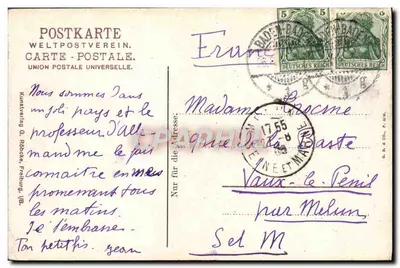 POSTKARTE
WELTPOSTVEREIN.
CARTE - POSTALE.
UNION POSTALE UNIVERSELLE.
Nous sommes dans
un joli pays et le
professeur d'Alle
mand me le fait
connaitre en me
promenant tous
les matins.
Je t'embrasse.
Ton petit fils.
Jean
Kunstverlag G. Röbcke, Freiburg, i/B.
Nur für die Adresse.
France
BADEN-BADEN
5 5
DEUTSCHES REICH
DEUTSCHES REICH
Madame
rue de la
Vaux-le-Penil
par Melun
S et M
17 55
SEINE ET MARNE